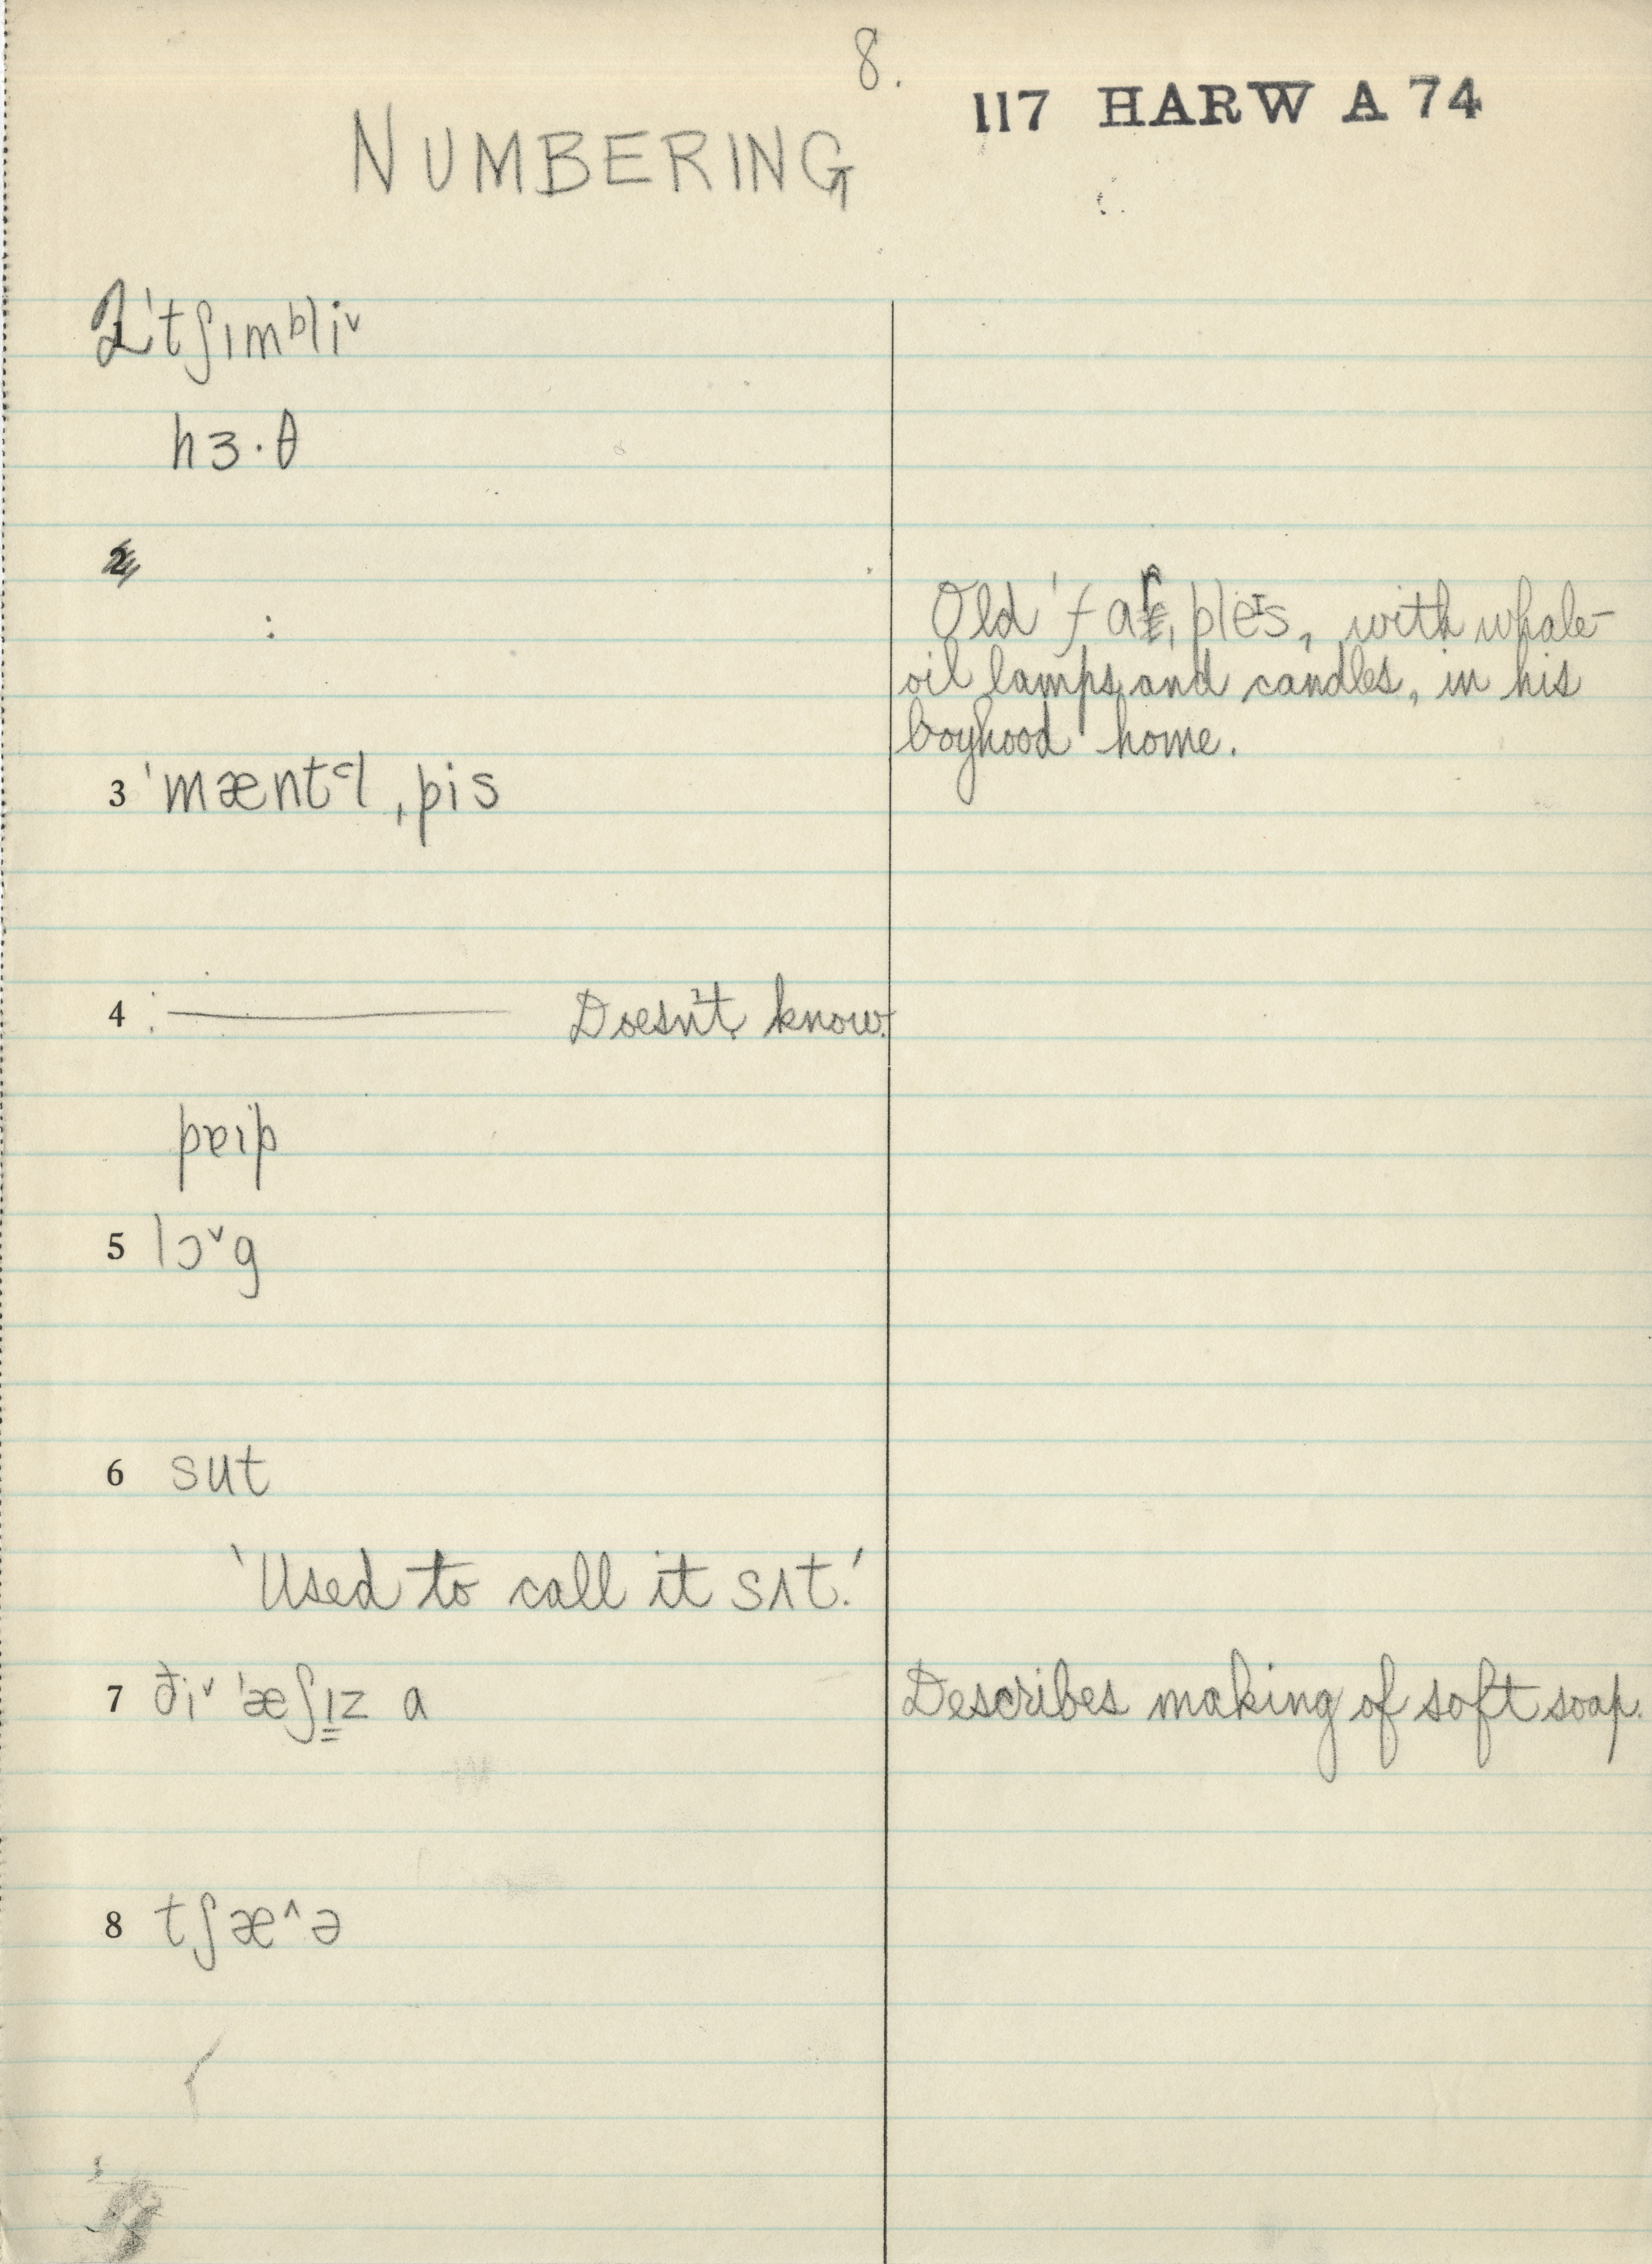 8.
117 HARW A 74
NUMBERING
2 ˈtʃɪmᵇliᵛ
hɜ·θ
2
Old ˈfaɪrˌpleɪs, with whale-
oil lamps and candles, in his
boyhood home.
3 ˈmæntᵊl ˌpis
4 : ——— Doesn't know.
pɐıp
5 lɔᵛg
6 sut
'Used to call it sʌt.'
7 ðiᵛ ˈæʃɪz a
Describes making of soft soap.
8 tʃæ^ə